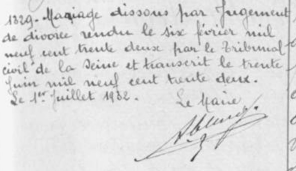 1329. Mariage dissous par Jugement
de divorce rendu le six février mil
neuf cent trente deux par le Tribunal
civil de la Seine et transcrit le trente
Juin mil neuf cent trente deux.
Le 1er Juillet 1932. Le Maire